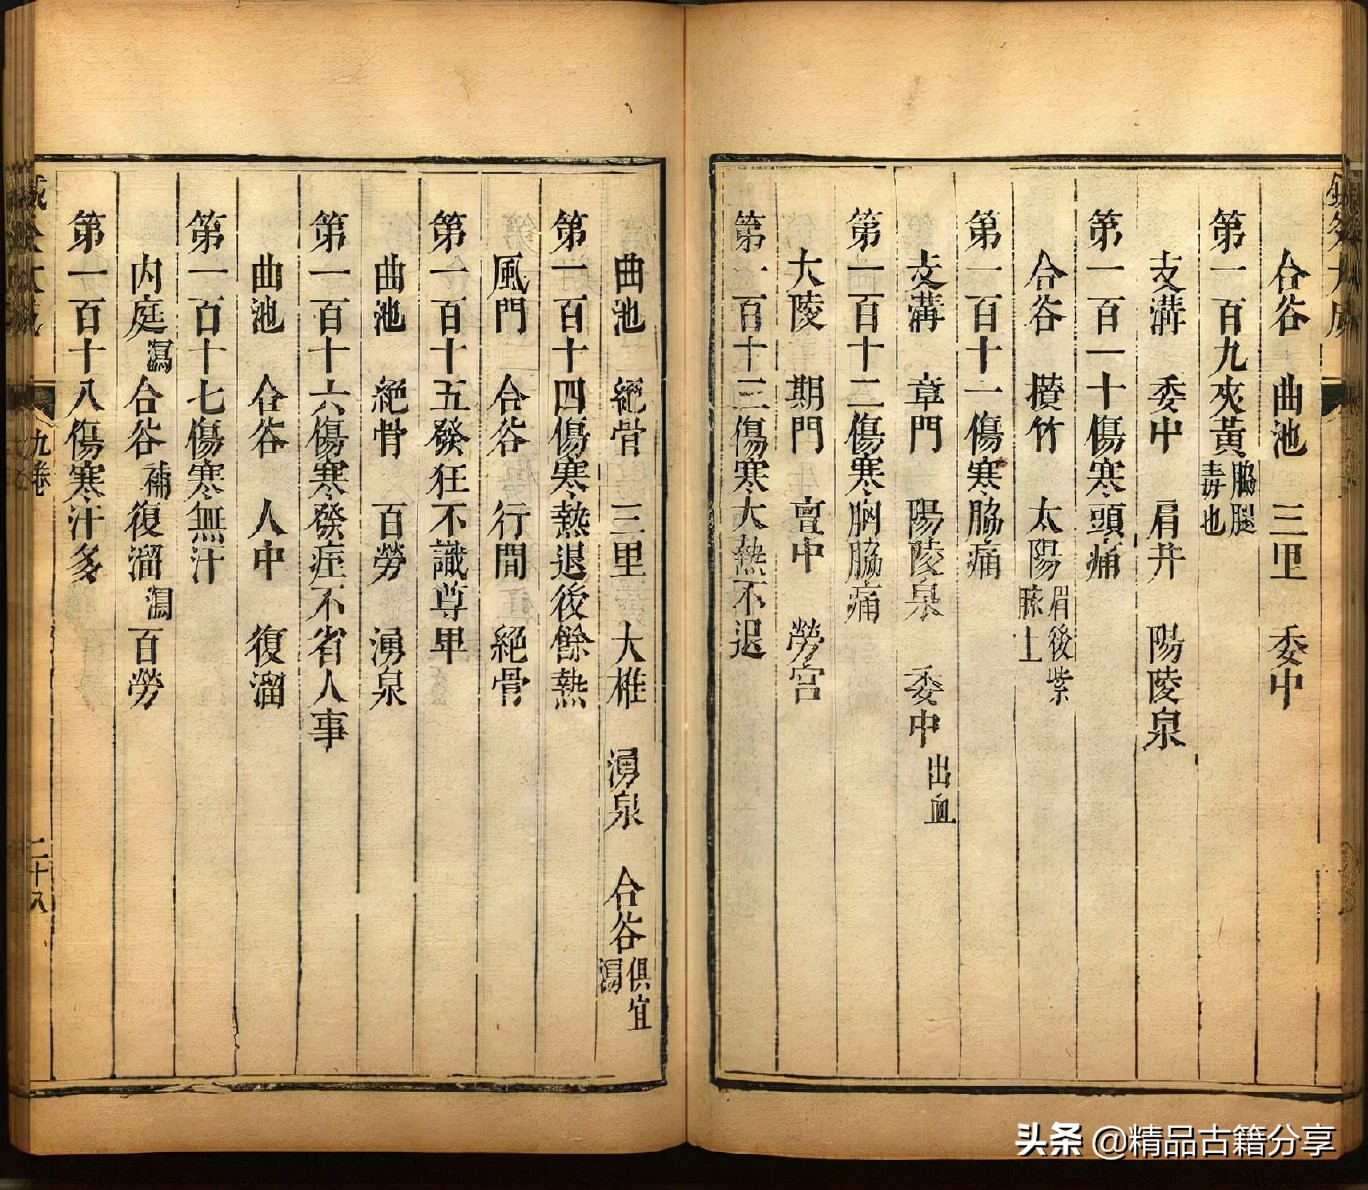 合谷 曲池 三里 委中
第一百九夾黃脇腿毒也
支溝 委中 肩井 陽陵泉
第一百一十傷寒頭痛
合谷 攅竹 太陽眉後紫脉上
第一百十一傷寒脇痛
支溝 章門 陽陵泉 委中出血
第一百十二傷寒胸脇痛
大陵 期門 亶中 勞宮
第一百十三傷寒大熱不退
曲池 絕骨 三里 大椎 湧泉 合谷俱宜瀉
第一百十四傷寒熱退後餘熱
風門 合谷 行間 絕骨
第一百十五發狂不識尊卑
曲池 絕骨 百勞 湧泉
第一百十六傷寒發痓不省人事
曲池 合谷 人中 復溜
第一百十七傷寒無汗
內庭瀉合谷補復溜瀉百勞
第一百十八傷寒汗多
九卷
二十八
头条 @精品古籍分享